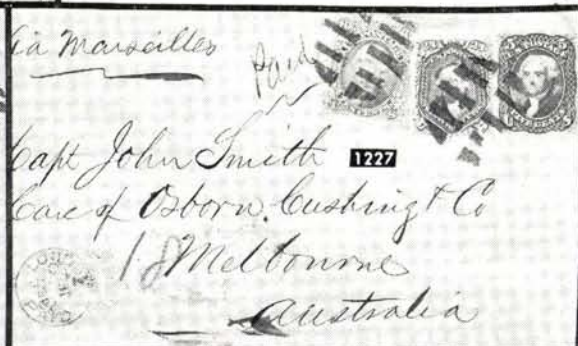 via Marseilles
Paid
Capt John Smith
1227
Care of Osborn, Cushing & Co
18
Melbourne
Australia
LONDON
PAID